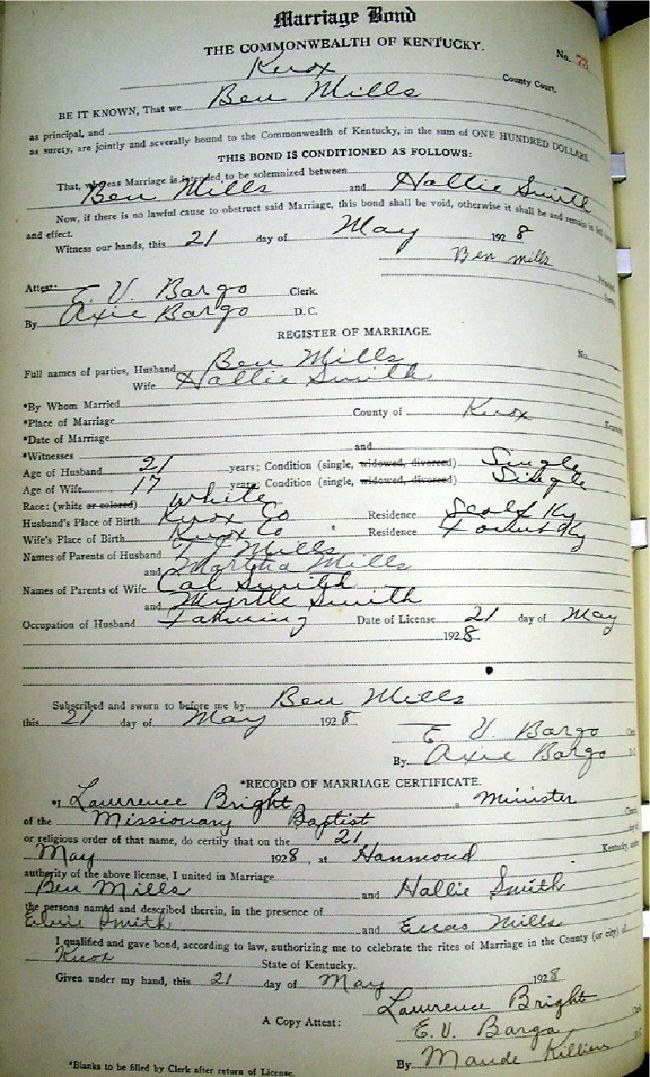 Marriage Bond
THE COMMONWEALTH OF KENTUCKY.
No. 73
Knox County Court.
BE IT KNOWN, That we Ben Mills
as principal, and
as surety, are jointly and severally bound to the Commonwealth of Kentucky, in the sum of ONE HUNDRED DOLLARS.
THIS BOND IS CONDITIONED AS FOLLOWS:
That, whereas Marriage is intended to be solemnized between
Ben Mills and Hallie Smith
Now, if there is no lawful cause to obstruct said Marriage, this bond shall be void, otherwise it shall be and remain in full force
and effect.
Witness our hands, this 21 day of May 1928
Ben mills
Attest: E. V. Bargo Clerk.
By Axie Bargo D.C.
REGISTER OF MARRIAGE.
No.
Full names of parties, Husband Ben Mills
Wife Hallie Smith
*By Whom Married
*Place of Marriage County of Knox Kentucky
*Date of Marriage
*Witnesses and
Age of Husband 21 years; Condition (single, widowed, divorced) Single
Age of Wife 17 years Condition (single, widowed, divorced) Single
Race: (white or colored) White
Husband's Place of Birth Knox Co Residence Scalf Ky
Wife's Place of Birth Knox Co Residence Ky
Names of Parents of Husband Mills
and Martha Mills
Names of Parents of Wife Cal Smith
and Myrtle Smith
Occupation of Husband Farming Date of License 21 day of May
1928
Subscribed and sworn to before me by Ben Mills
this 21 day of May 1928
E. V. Bargo
By Axie Bargo
*RECORD OF MARRIAGE CERTIFICATE.
*I Lawrence Bright, Minister
of the Missionary Baptist
or religious order of that name, do certify that on the 21
May 1928, at Hammond Kentucky, under
authority of the above license, I united in Marriage
Ben Mills and Hallie Smith
the persons named and described therein, in the presence of
Smith and Mills
I qualified and gave bond, according to law, authorizing me to celebrate the rites of Marriage in the County (or city) of
Knox State of Kentucky.
Given under my hand, this 21 day of May 1928
Lawrence Bright
A Copy Attest: E. V. Bargo
By Maude Killion
*Blanks to be filled by Clerk after return of License.